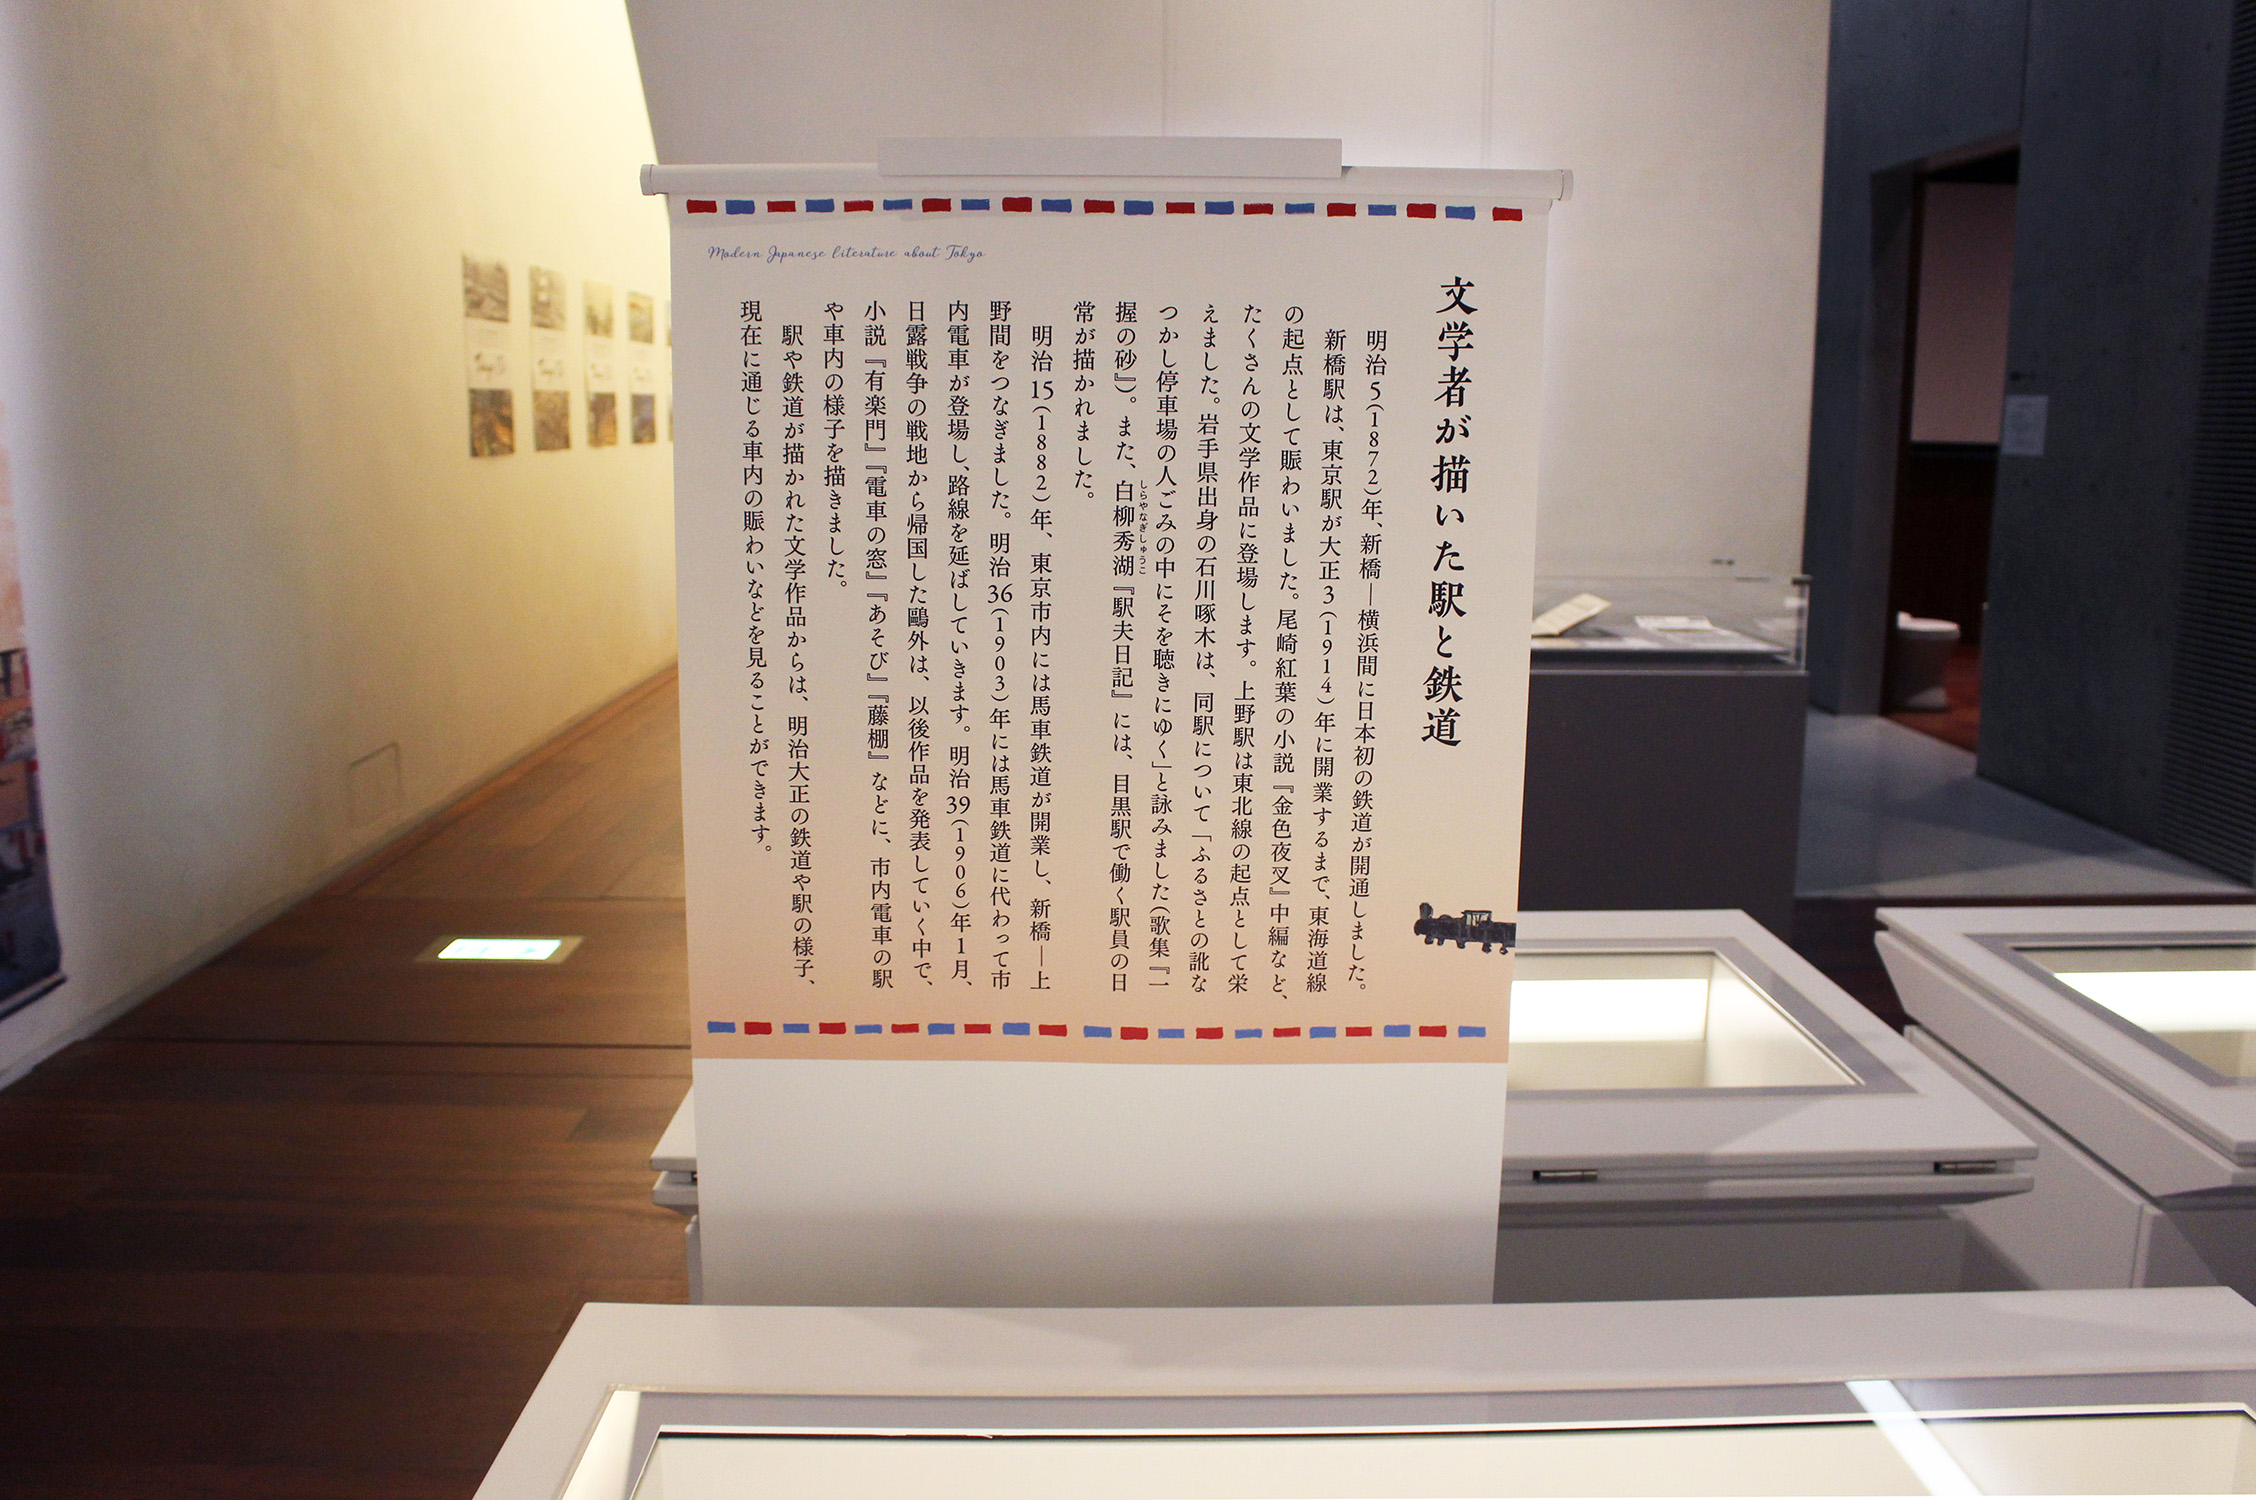 Modern Japanese literature about Tokyo
文学者が描いた駅と鉄道
明治5(1872)年、新橋―横浜間に日本初の鉄道が開通しました。
新橋駅は、東京駅が大正3(1914)年に開業するまで、東海道線
の起点として賑わいました。尾崎紅葉の小説『金色夜叉』中編など、
たくさんの文学作品に登場します。上野駅は東北線の起点として栄
えました。岩手県出身の石川啄木は、同駅について「ふるさとの訛な
つかし停車場の人ごみの中にそを聴きにゆく」と詠みました(歌集『一
握の砂』)。また、白柳秀湖『駅夫日記』には、目黒駅で働く駅員の日
しらやなぎしゅうこ
常が描かれました。
明治15(1882)年、東京市内には馬車鉄道が開業し、新橋―上
野間をつなぎました。明治36(1903)年には馬車鉄道に代わって市
内電車が登場し、路線を延ばしていきます。明治39(1906)年1月、
日露戦争の戦地から帰国した鷗外は、以後作品を発表していく中で、
小説『有楽門』『電車の窓』『あそび』『藤棚』などに、市内電車の駅
や車内の様子を描きました。
駅や鉄道が描かれた文学作品からは、明治大正の鉄道や駅の様子、
現在に通じる車内の賑わいなどを見ることができます。